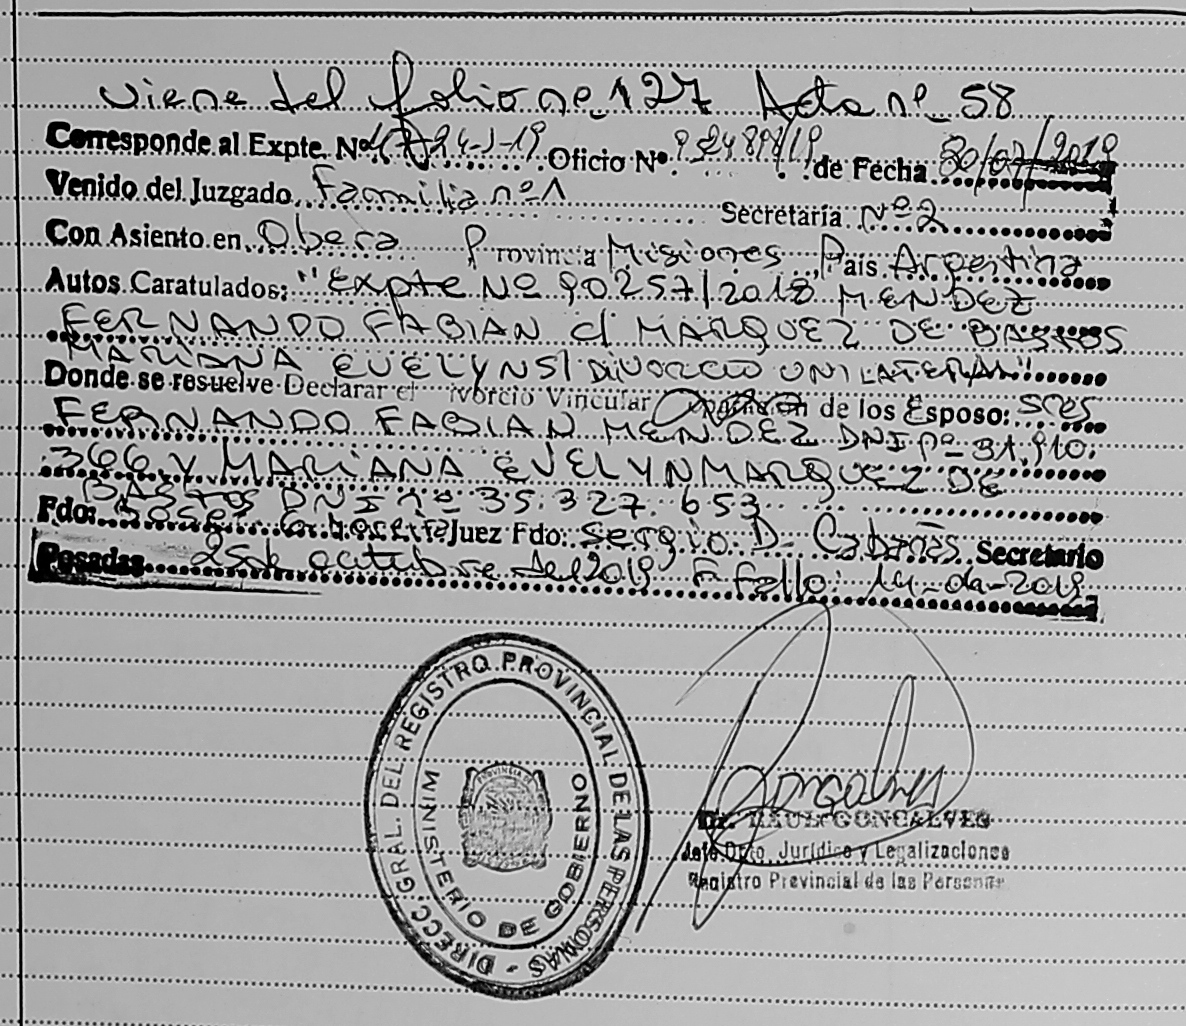 viene del folio nº 127 Acta nº 58
Corresponde al Expte. Nº Oficio Nº de Fecha 30/07/2019
Venido del Juzgado Familia nº 1 Secretaría Nº 2
Con Asiento en Obera Provincia Misiones País Argentina
Autos Caratulados: "Expte Nº 90257/2018 MENDEZ
FERNANDO FABIAN c/ MARQUEZ DE BASTOS
MARIANA EVELYN S/ DIVORCIO UNILATERAL"
Donde se resuelve Declarar el ivorcio Vincular de los Esposo: sres
FERNANDO FABIAN MENDEZ DNI nº 31.910.
366 y MARIANA EVELYN MARQUEZ DE
BASTOS DNI nº 35.327.653
Fdo: Juez Fdo: Sergio D. Cabañas Secretario
Posadas 25 de octubre del 2019 F. Fallo: 2019
DIRECC. GRAL. DEL REGISTRO PROVINCIAL DE LAS PERSONAS -
MINISTERIO DE GOBIERNO
PROVINCIA DE
RAUL GONCALVES
Jefe Dpto. Jurídico y Legalizaciones
Registro Provincial de las Personas